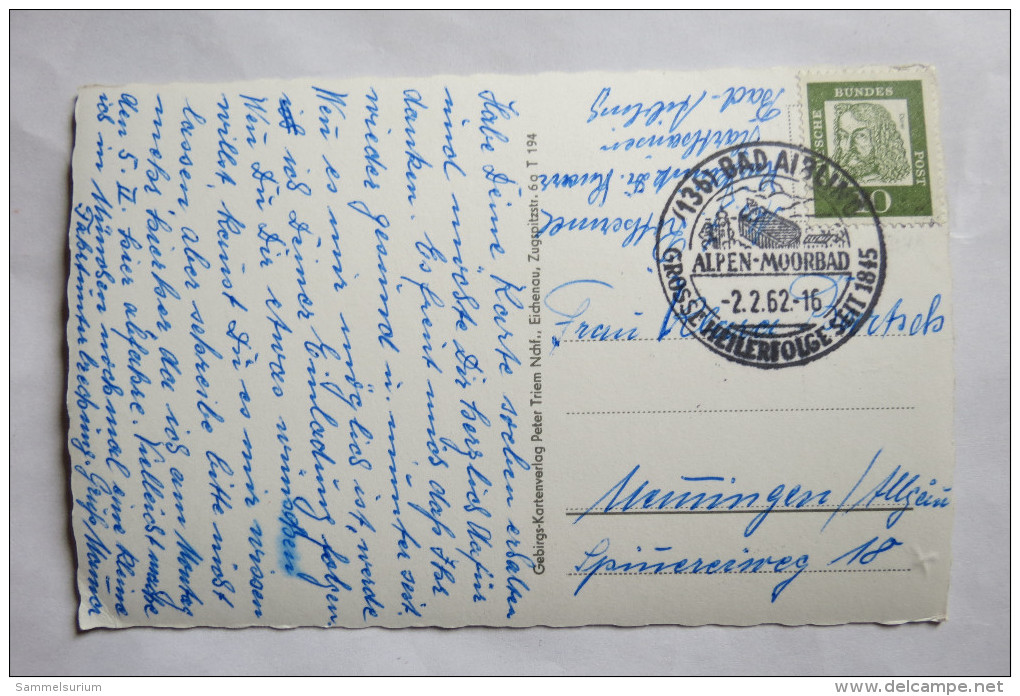 Habe Deine Karte soeben erhalten
und möchte Dir herzlich dafür
danken. Es freut mich daß Ihr
wieder gesund u. munter seit.
Wen es mir möglich ist, werde
ich Deiner Einladung folgen
Wen Du Dir etwas wünschen
willst kannst Du es mir wissen
lassen, aber schreibe bitte nicht
mehr hierher da ich am Montag
den 5. II. hier abfahre. Vielleicht mache
ich in München nochmal eine kleine
Fahrtunterbrechung. Gruß
Gebirgs-Kartenverlag Peter Triem Nchf., Eichenau, Zugspitzstr. 6a T 194
Karthausen
Bad-Aibling
DEUTSCHE BUNDESPOST
Dürer
10
(13b) BAD AIBLING
ALPEN-MOORBAD
-2.2.62.-16
GROSSE HEILERFOLGE SEIT 1845
Frau
Memmingen/Allgäu
Spinnereiweg 18
Sammelsurium
www.delcampe.net